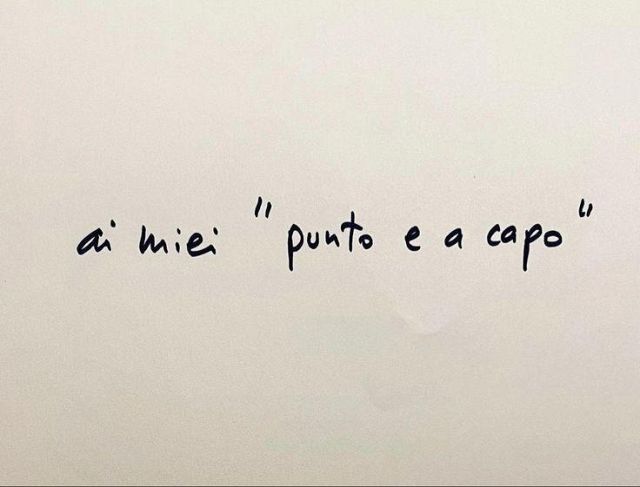 ai miei "punto e a capo"